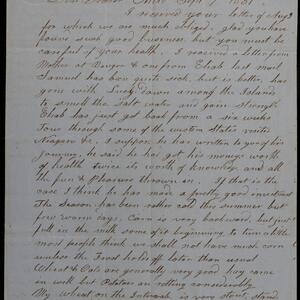 Sept 7 1857
I received your letter of Aug 3
for which we are much obliged, glad you have
found such good business but you must be
careful of your health. I received a letter from
Mother at Bangor & one from Eliab last mail
Samuel has been quite sick, but is better, has
gone with Lucy Dawn among the Island
to smell the Salt water and gain strength
Eliab has just got back from a six weeks
Tour through some of the western States visited
Niagara &c. I suppose he has written to you of his
Journey, he said he has got his moneys worth
of health twice its worth of knowledge and all
the fun & Pleasure thrown in. If that is the
case I think he has made a pretty good investment
The Season has been rather cold this summer but
few warm days, Corn is very backward, but just
full in the milk some of it beginning to turn a little
most people think we shall not have much corn
unless the Frost holds off later than usual
Wheat & Oats are generally very good hay came
in well but Potatoes are rotting considerably
My wheat on the Intervale is very stout, stands